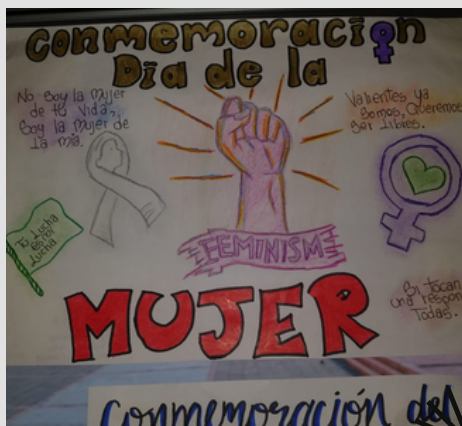 Conmemoración
Dia de la
No soy la Mujer
de tu vida,
Soy la Mujer de
la mia.
Valientes ya
Somos, Queremos
Ser Libres.
Tu Lucha
es mi
Lucha
FEMINISM
MUJER
Si tocan
una respon
Todas.
Conmemoración del